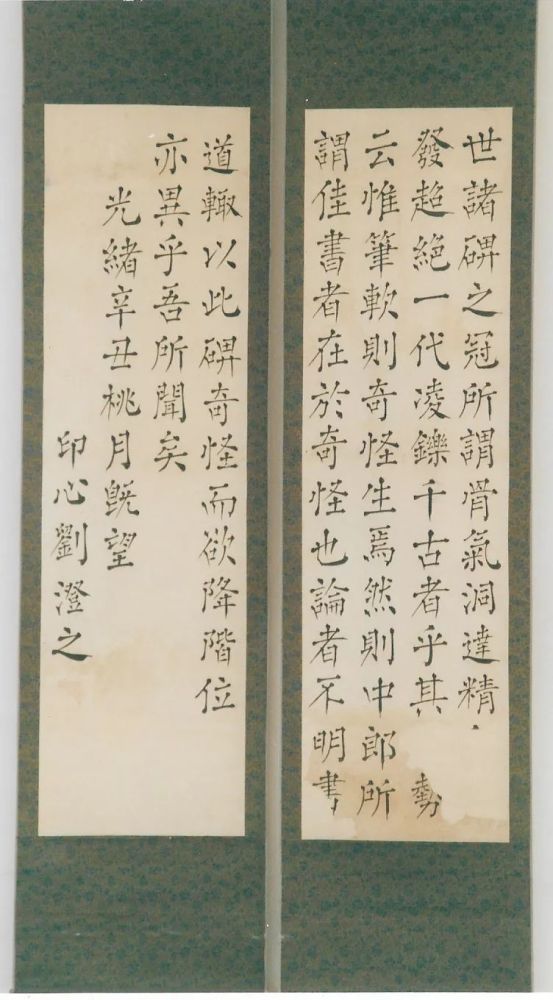 世諸碑之冠所謂骨氣洞達精
發超絕一代凌鑠千古者乎其勢
云惟筆軟則奇怪生焉然則中郎所
謂佳書者在於奇怪也論者不明書
道輙以此碑奇怪而欲降階位
亦異乎吾所聞矣
光緒辛丑桃月既望
印心劉澄之